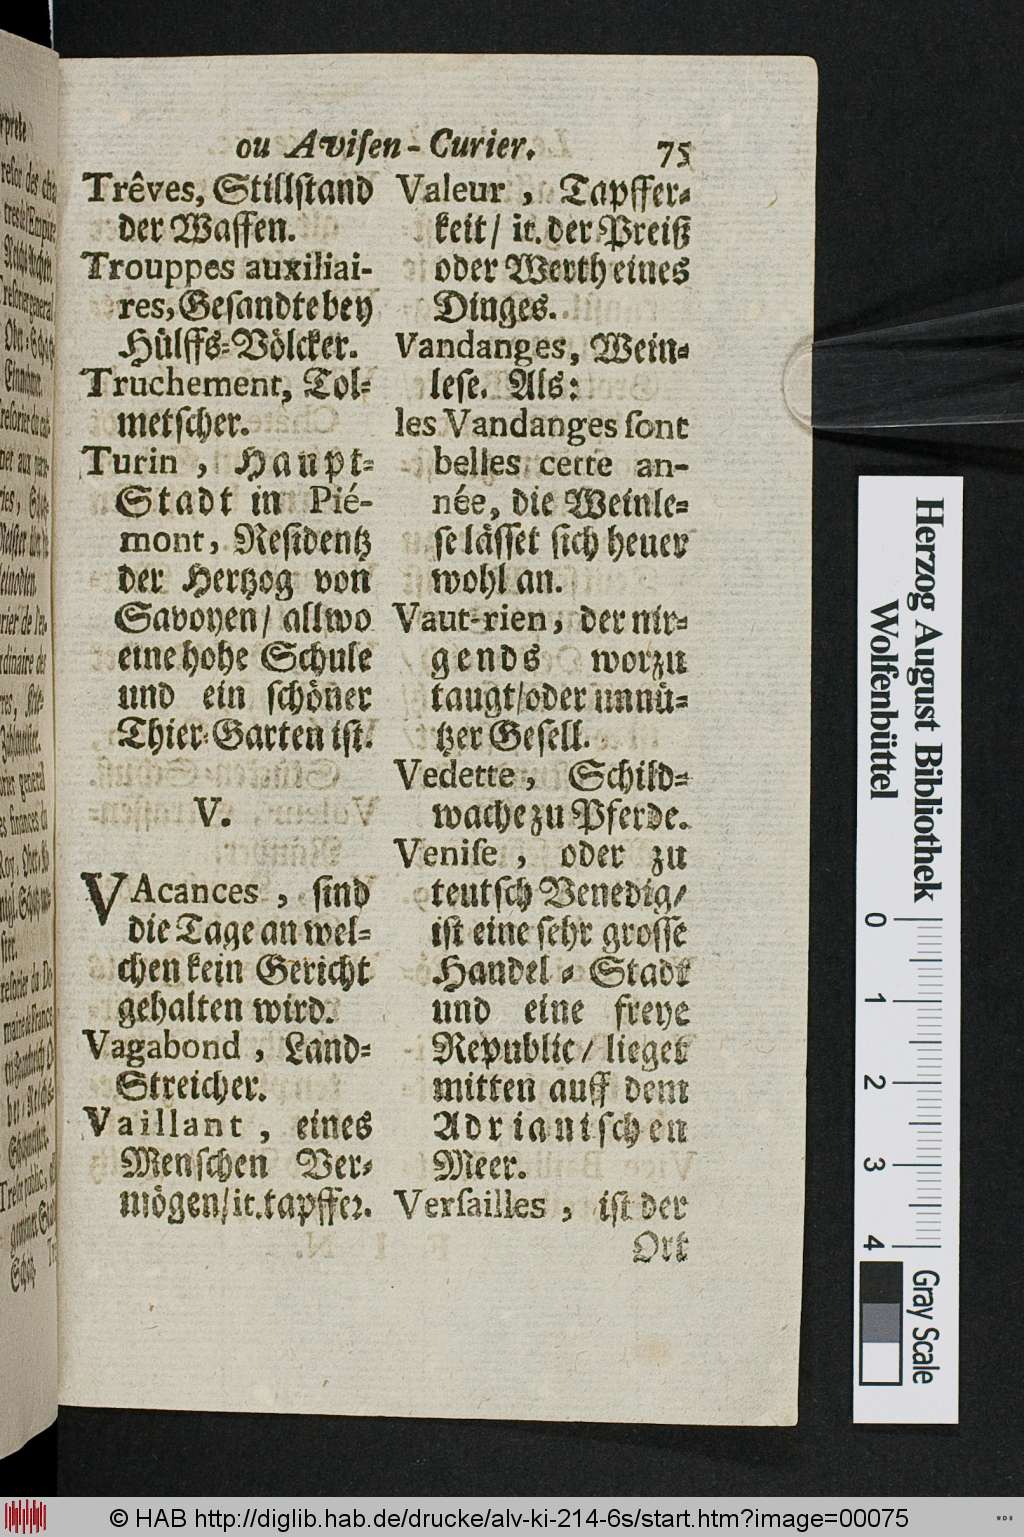 ou Aviſen-Curier. 75
Trêves, Stillſtand
der Waffen.
Trouppes auxiliai-
res, Geſandte bey
Hülffs-Völcker.
Truchement, Tol-
metſcher.
Turin, Haupt-
Stadt in Pié-
mont, Reſidentz
der Hertzog von
Savoyen/ allwo
eine hohe Schule
und ein ſchöner
Thier-Garten iſt.
V.
VAcances, ſind
die Tage an wel-
chen kein Gericht
gehalten wird.
Vagabond, Land-
Streicher.
Vaillant, eines
Menſchen Ver-
mögen/ it. tapffer.
Valeur, Tapffer-
keit/ it. der Preiß
oder Werth eines
Dinges.
Vandanges, Wein-
leſe. Als:
les Vandanges ſont
belles cette an-
née, die Weinle-
ſe läſſet ſich heuer
wohl an.
Vaut-rien, der nir-
gends worzu
taugt/ oder unnü-
tzer Geſell.
Vedette, Schild-
wache zu Pferde.
Veniſe, oder zu
teutſch Venedig/
iſt eine ſehr groſſe
Handel-Stadt
und eine freye
Republic/ lieget
mitten auff dem
Adrianiſchen
Meer.
Verſailles, iſt der
Ort
Herzog August Bibliothek
Wolfenbüttel
0 1 2 3 4
Gray Scale
© HAB http://diglib.hab.de/drucke/alv-ki-214-6s/start.htm?image=00075